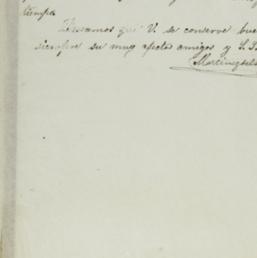 tiempo
Deseamos que V. se conserve bue
siempre su muy afectos amigos y S. S.